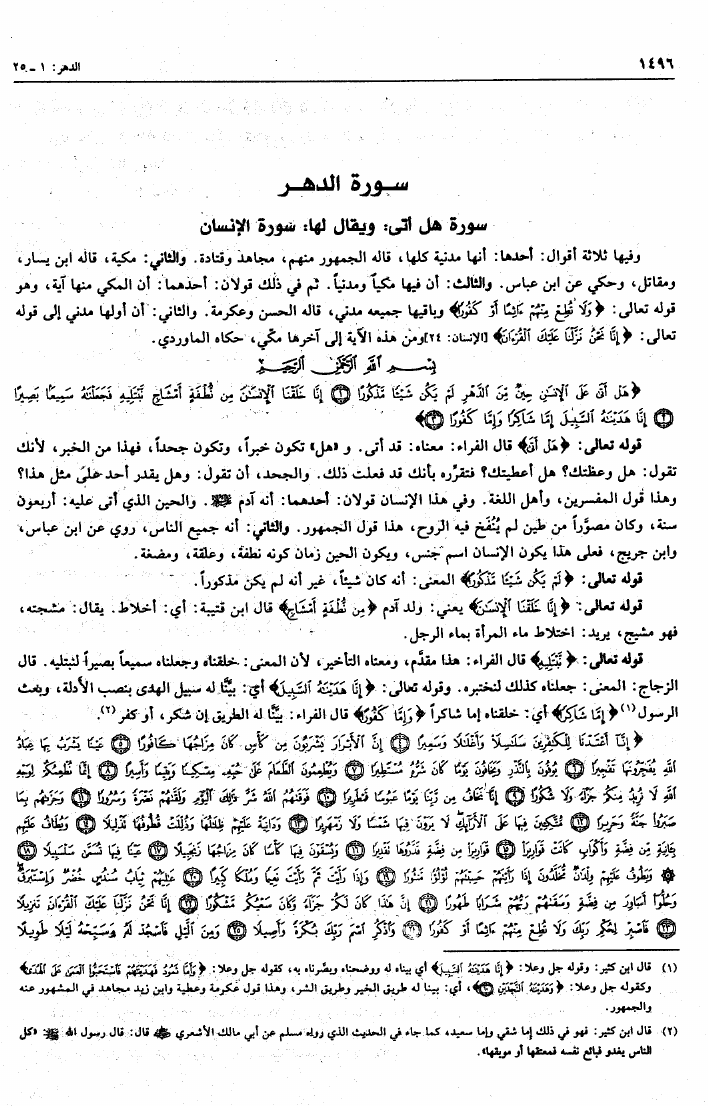 ١٤٩٦
الدهر: ١ - ٢٥
سورة الدهر
سورة هل أتى: ويقال لها: سورة الإنسان
وفيها ثلاثة أقوال: أحدها: أنها مدنية كلها، قاله الجمهور منهم، مجاهد وقتادة. والثاني: مكية، قاله ابن يسار،
ومقاتل، وحكي عن ابن عباس. والثالث: أن فيها مكياً ومدنياً. ثم في ذلك قولان: أحدهما: أن المكي منها آية، وهو
قوله تعالى: ﴿وَلَا تُطِعْ مِنْهُمْ ءَاثِمًا أَوْ كَفُورًا﴾ وباقيها جميعه مدني، قاله الحسن وعكرمة. والثاني: أن أولها مدني إلى قوله
تعالى: ﴿إِنَّا نَحْنُ نَزَّلْنَا عَلَيْكَ ٱلْقُرْءَانَ﴾ [الإنسان: ٢٤] ومن هذه الآية إلى آخرها مكي، حكاه الماوردي.
بِسْمِ ٱللَّهِ ٱلرَّحْمَٰنِ ٱلرَّحِيمِ
﴿هَلْ أَتَىٰ عَلَى ٱلْإِنسَٰنِ حِينٌ مِّنَ ٱلدَّهْرِ لَمْ يَكُن شَيْـًٔا مَّذْكُورًا ۝١ إِنَّا خَلَقْنَا ٱلْإِنسَٰنَ مِن نُّطْفَةٍ أَمْشَاجٍ نَّبْتَلِيهِ فَجَعَلْنَٰهُ سَمِيعًۢا بَصِيرًا
۝٢ إِنَّا هَدَيْنَٰهُ ٱلسَّبِيلَ إِمَّا شَاكِرًا وَإِمَّا كَفُورًا ۝٣﴾
قوله تعالى: ﴿هَلْ أَتَىٰ﴾ قال الفراء: معناه: قد أتى. و «هل» تكون خبراً، وتكون جحداً، فهذا من الخبر، لأنك
تقول: هل وعظتك؟ هل أعطيتك؟ فتقرِّره بأنك قد فعلت ذلك. والجحد، أن تقول: وهل يقدر أحد على مثل هذا؟
وهذا قول المفسرين، وأهل اللغة. وفي هذا الإنسان قولان: أحدهما: أنه آدم ﷺ. والحين الذي أتى عليه: أربعون
سنة، وكان مصوَّراً من طين لم يُنْفَخ فيه الروح، هذا قول الجمهور. والثاني: أنه جميع الناس، روي عن ابن عباس،
وابن جريج، فعلى هذا يكون الإنسان اسم جنس، ويكون الحين زمان كونه نطفة، وعلقة، ومضغة.
قوله تعالى: ﴿لَمْ يَكُن شَيْـًٔا مَّذْكُورًا﴾ المعنى: أنه كان شيئاً، غير أنه لم يكن مذكوراً.
قوله تعالى: ﴿إِنَّا خَلَقْنَا ٱلْإِنسَٰنَ﴾ يعني: ولد آدم ﴿مِن نُّطْفَةٍ أَمْشَاجٍ﴾ قال ابن قتيبة: أي: أخلاط. يقال: مشجته،
فهو مشيج، يريد: اختلاط ماء المرأة بماء الرجل.
قوله تعالى: ﴿نَّبْتَلِيهِ﴾ قال الفراء: هذا مقدَّم، ومعناه التأخير، لأن المعنى: خلقناه وجعلناه سميعاً بصيراً لنبتليه. قال
الزجاج: المعنى: جعلناه كذلك لنختبره. وقوله تعالى: ﴿إِنَّا هَدَيْنَٰهُ ٱلسَّبِيلَ﴾ أي: بيَّنَّا له سبيل الهدى بنصب الأدلة، وبعث
الرسول(١) ﴿إِمَّا شَاكِرًا﴾ أي: خلقناه إما شاكراً ﴿وَإِمَّا كَفُورًا﴾ قال الفراء: بيَّنَّا له الطريق إن شكر، أو كفر(٢).
﴿إِنَّآ أَعْتَدْنَا لِلْكَٰفِرِينَ سَلَٰسِلَا۟ وَأَغْلَٰلًا وَسَعِيرًا ۝٤ إِنَّ ٱلْأَبْرَارَ يَشْرَبُونَ مِن كَأْسٍ كَانَ مِزَاجُهَا كَافُورًا ۝٥ عَيْنًا يَشْرَبُ بِهَا عِبَادُ
ٱللَّهِ يُفَجِّرُونَهَا تَفْجِيرًا ۝٦ يُوفُونَ بِٱلنَّذْرِ وَيَخَافُونَ يَوْمًا كَانَ شَرُّهُۥ مُسْتَطِيرًا ۝٧ وَيُطْعِمُونَ ٱلطَّعَامَ عَلَىٰ حُبِّهِۦ مِسْكِينًا وَيَتِيمًا وَأَسِيرًا ۝٨ إِنَّمَا نُطْعِمُكُمْ لِوَجْهِ
ٱللَّهِ لَا نُرِيدُ مِنكُمْ جَزَآءً وَلَا شُكُورًا ۝٩ إِنَّا نَخَافُ مِن رَّبِّنَا يَوْمًا عَبُوسًا قَمْطَرِيرًا ۝١٠ فَوَقَىٰهُمُ ٱللَّهُ شَرَّ ذَٰلِكَ ٱلْيَوْمِ وَلَقَّىٰهُمْ نَضْرَةً وَسُرُورًا ۝١١ وَجَزَىٰهُم بِمَا
صَبَرُوا۟ جَنَّةً وَحَرِيرًا ۝١٢ مُّتَّكِـِٔينَ فِيهَا عَلَى ٱلْأَرَآئِكِ لَا يَرَوْنَ فِيهَا شَمْسًا وَلَا زَمْهَرِيرًا ۝١٣ وَدَانِيَةً عَلَيْهِمْ ظِلَٰلُهَا وَذُلِّلَتْ قُطُوفُهَا تَذْلِيلًا ۝١٤ وَيُطَافُ عَلَيْهِم
بِـَٔانِيَةٍ مِّن فِضَّةٍ وَأَكْوَابٍ كَانَتْ قَوَارِيرَا۠ ۝١٥ قَوَارِيرَا۟ مِن فِضَّةٍ قَدَّرُوهَا تَقْدِيرًا ۝١٦ وَيُسْقَوْنَ فِيهَا كَأْسًا كَانَ مِزَاجُهَا زَنجَبِيلًا ۝١٧ عَيْنًا فِيهَا تُسَمَّىٰ سَلْسَبِيلًا ۝١٨
۞ وَيَطُوفُ عَلَيْهِمْ وِلْدَٰنٌ مُّخَلَّدُونَ إِذَا رَأَيْتَهُمْ حَسِبْتَهُمْ لُؤْلُؤًا مَّنثُورًا ۝١٩ وَإِذَا رَأَيْتَ ثَمَّ رَأَيْتَ نَعِيمًا وَمُلْكًا كَبِيرًا ۝٢٠ عَٰلِيَهُمْ ثِيَابُ سُندُسٍ خُضْرٌ وَإِسْتَبْرَقٌ
وَحُلُّوٓا۟ أَسَاوِرَ مِن فِضَّةٍ وَسَقَىٰهُمْ رَبُّهُمْ شَرَابًا طَهُورًا ۝٢١ إِنَّ هَٰذَا كَانَ لَكُمْ جَزَآءً وَكَانَ سَعْيُكُم مَّشْكُورًا ۝٢٢ إِنَّا نَحْنُ نَزَّلْنَا عَلَيْكَ ٱلْقُرْءَانَ تَنزِيلًا
۝٢٣ فَٱصْبِرْ لِحُكْمِ رَبِّكَ وَلَا تُطِعْ مِنْهُمْ ءَاثِمًا أَوْ كَفُورًا ۝٢٤ وَٱذْكُرِ ٱسْمَ رَبِّكَ بُكْرَةً وَأَصِيلًا ۝٢٥ وَمِنَ ٱلَّيْلِ فَٱسْجُدْ لَهُۥ وَسَبِّحْهُ لَيْلًا طَوِيلًا
(١) قال ابن كثير: وقوله جل وعلا: ﴿إِنَّا هَدَيْنَٰهُ ٱلسَّبِيلَ﴾ أي بيناه له ووضحناه وبصَّرناه به، كقوله جل وعلا: ﴿وَأَمَّا ثَمُودُ فَهَدَيْنَٰهُمْ فَٱسْتَحَبُّوا۟ ٱلْعَمَىٰ عَلَى ٱلْهُدَىٰ﴾
وكقوله جل وعلا: ﴿وَهَدَيْنَٰهُ ٱلنَّجْدَيْنِ ۝١٠﴾، أي: بينا له طريق الخير وطريق الشر، وهذا قول عكرمة وعطية وابن زيد مجاهد في المشهور عنه
والجمهور.
(٢) قال ابن كثير: فهو في ذلك إما شقي وإما سعيد، كما جاء في الحديث الذي رواه مسلم عن أبي مالك الأشعري ﵁ قال: قال رسول الله ﷺ «كل
الناس يغدو فبائع نفسه فمعتقها أو موبقها».